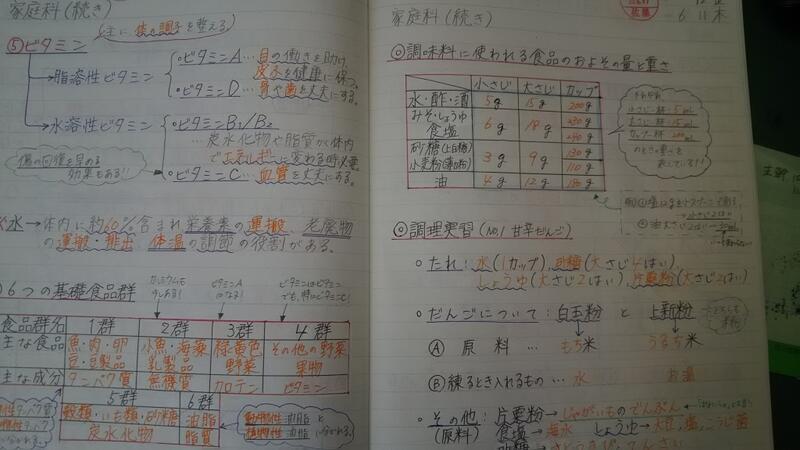 家庭科(続き)
(主に体の調子を整える)
⑤ビタミン
→脂溶性ビタミン
・ビタミンA…目の働きを助け、
皮ふを健康に保つ。
・ビタミンD…骨や歯を丈夫にする。
→水溶性ビタミン
・ビタミンB₁/B₂
…炭水化物や脂質が体内
でエネルギーに変わる時必要。
・ビタミンC…血管を丈夫にする。
傷の回復を早める
効果もある!!
水→体内に約60%含まれ栄養素の運搬、老廃物
の運搬・排出、体温の調節の役割がある。
6つの基礎食品群
カルシウムも
ビタミンA
食品群名 1群 2群 3群 4群
主な食品 魚・肉・卵 小魚・海藻 緑黄色 その他の野菜
豆・豆製品 乳製品 野菜 果物
主な成分 タンパク質 無機質 カロテン ビタミン
5群 6群
穀類・いも類・砂糖 油脂
炭水化物 脂質
動物性油脂と
植物性油脂に分かれる。
家庭科(続き)
6 11 木
◎調味料に使われる食品のおよその量と重さ
小さじ 大さじ カップ
水・酢・酒 5g 15g 200g
みそ・しょうゆ 6g 18g 230g
食塩 240g
砂糖(上白糖) 3g 9g 130g
小麦粉(薄力粉) 110g
油 4g 12g 180g
小さじ一杯 5ml
大さじ一杯 15ml
カップ一杯 200ml
のときの重さを
表している!!
◎調理実習(No.1 甘辛だんご)
・たれ:水(1カップ)、砂糖(大さじ4はい)
しょうゆ(大さじ2はい)、片栗粉(大さじ2はい)
・だんごについて:白玉粉 と 上新粉
Ⓐ 原料 … もち米 うるち米
Ⓑ 練るとき入れるもの … 水 お湯
・その他:片栗粉→じゃがいものでんぷん
(原料) 食塩→海水 しょうゆ→大豆、塩、こうじ菌